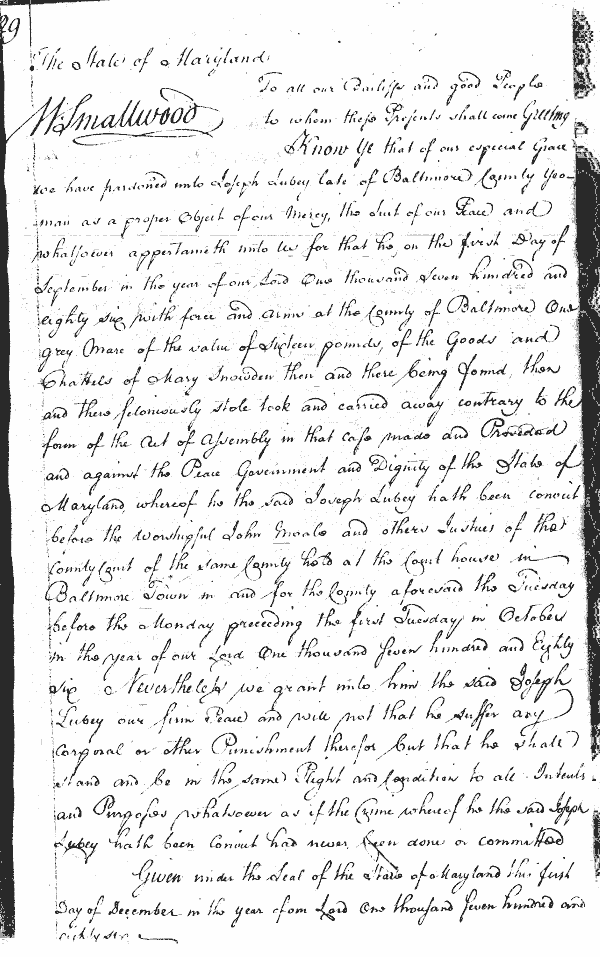 29
The State of Maryland
To all our Bailiffs and good People
W. Smallwood
to whom these Presents shall come Greeting
Know Ye that of our especial Grace
we have pardoned unto Joseph Lubey late of Baltimore County Yeo-
man as a proper Object of our Mercy, the Suit of our Peace and
whatsoever appertaineth unto Us for that he, on the first Day of
September in the year of our Lord One thousand Seven hundred and
eighty six with force and arms at the County of Baltimore One
grey Mare of the value of Sixteen pounds, of the Goods and
Chattels of Mary Snowden then and there being found, then
and there feloniously stole took and carried away contrary to the
form of the Act of Assembly in that case made and Provided
and against the Peace Government and Dignity of the State of
Maryland, whereof he the said Joseph Lubey hath been convict
before the worshipful John Moale and others Justices of that
County Court of the same County held at the Court house in
Baltimore Town in and for the County aforesaid the Tuesday
before the Monday preceeding the first Tuesday in October
in the year of our Lord One thousand Seven hundred and Eighty
six Nevertheless we grant unto him the said Joseph
Lubey our firm Peace and will not that he suffer any
corporal or other Punishment therefor but that he shall
stand and be in the same Plight and Condition to all Intents
and Purposes whatsoever as if the Crime whereof he the said Joseph
Lubey hath been Convict had never been done or committed
Given under the Seal of the State of Maryland this first
Day of December in the year of our Lord One thousand Seven hundred and
eighty six